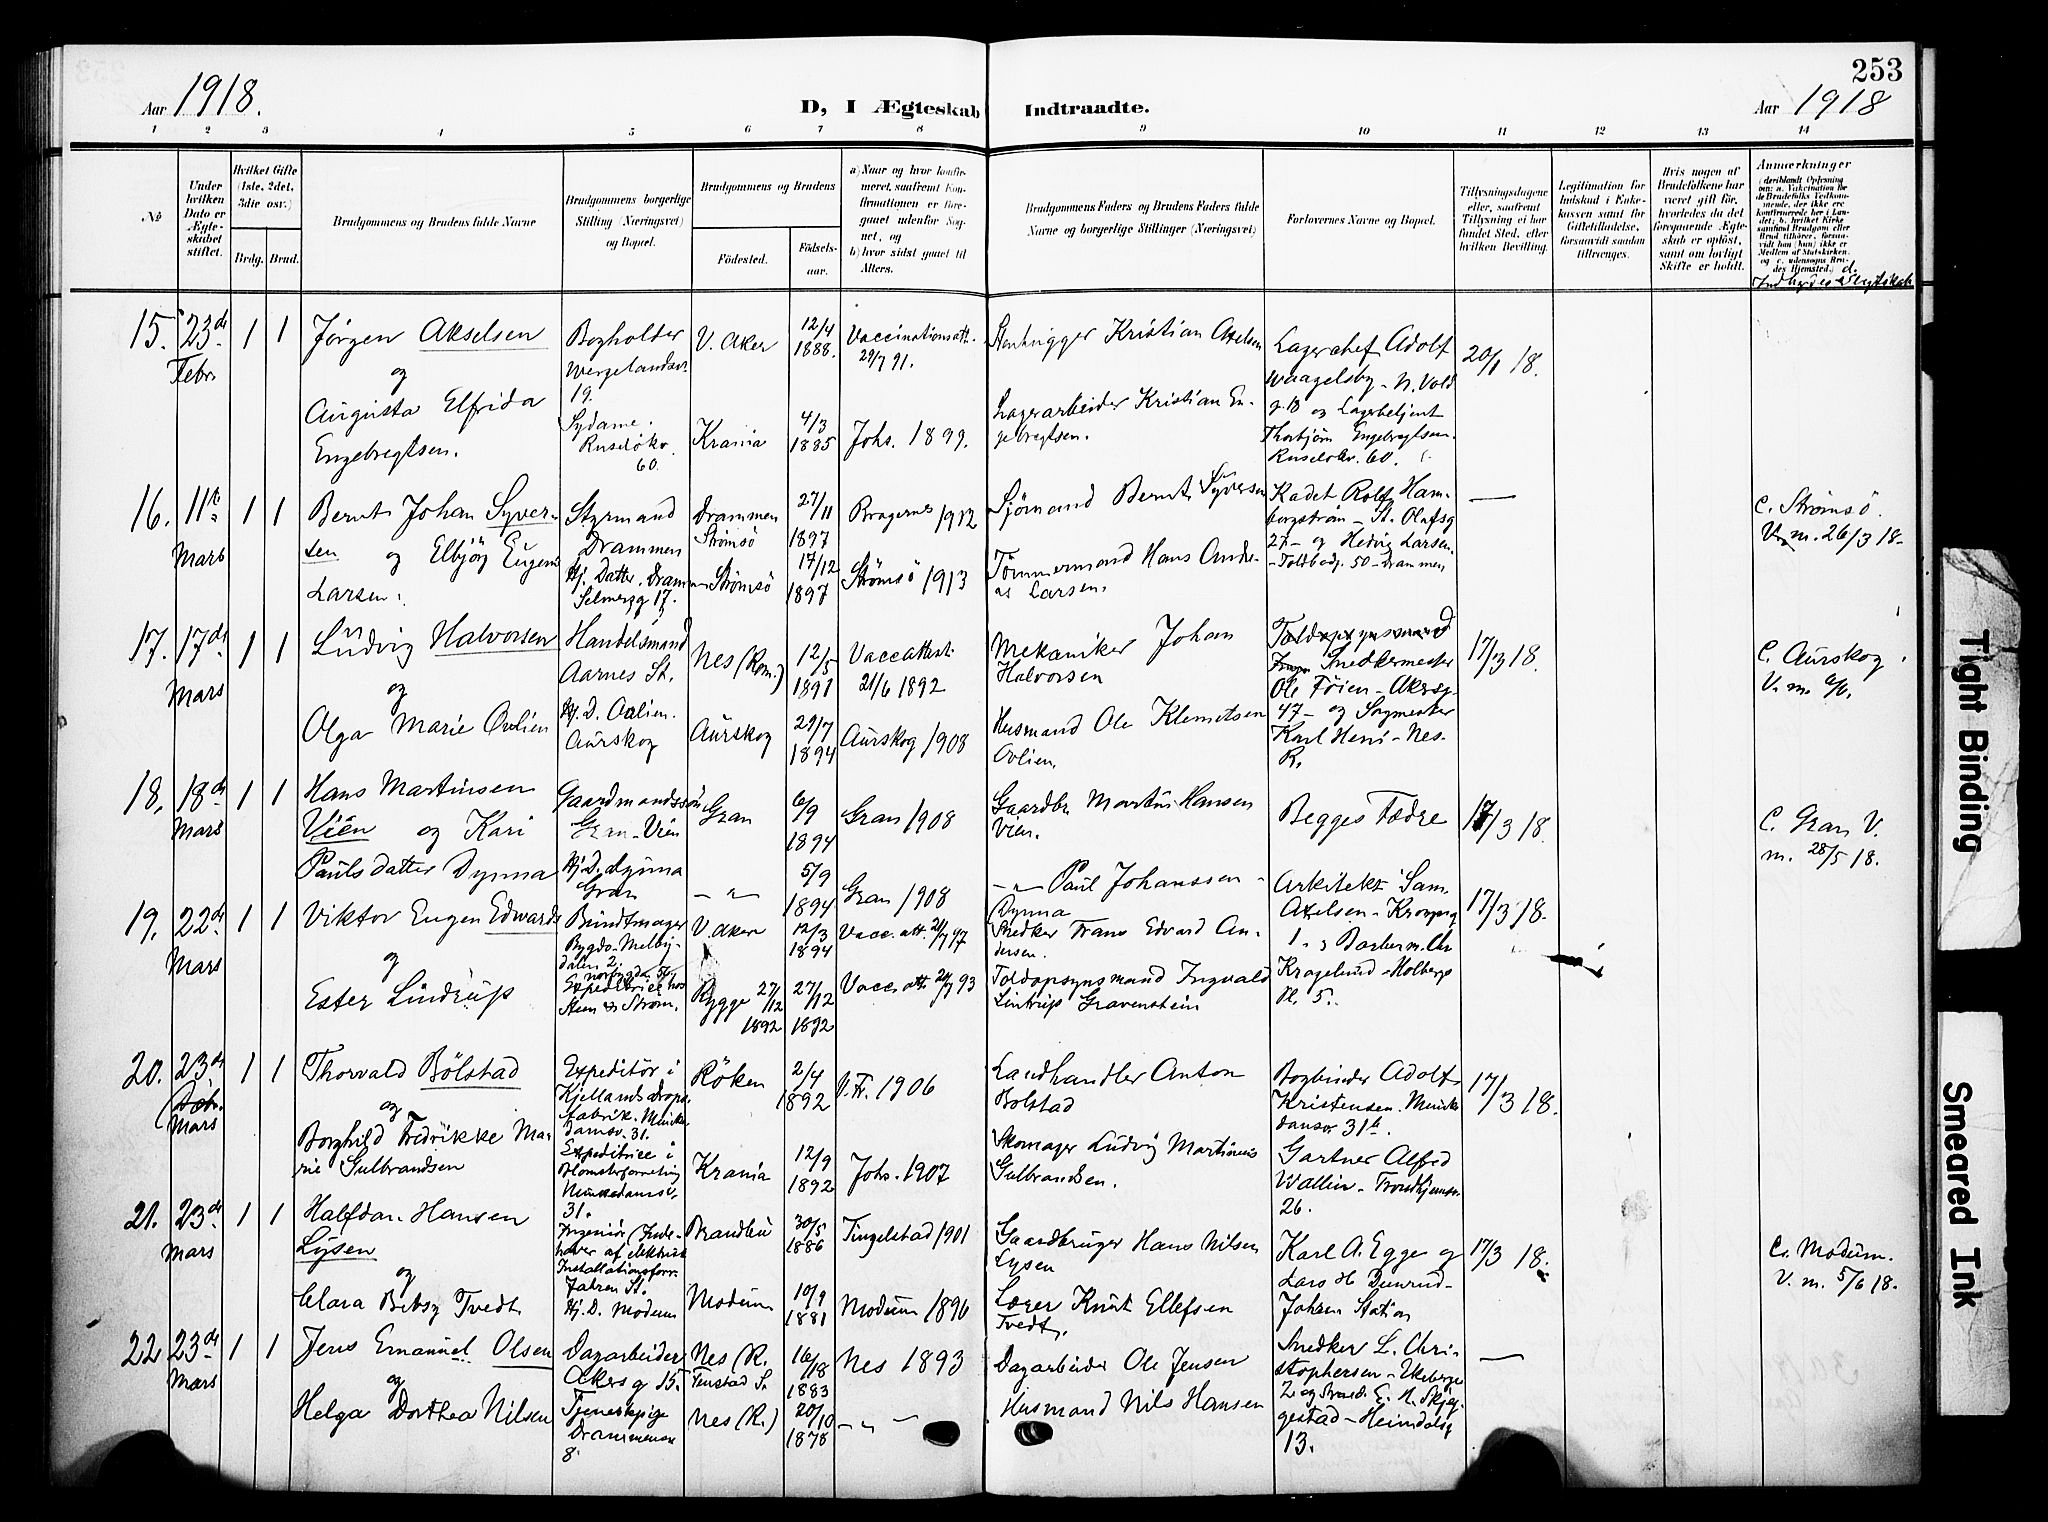 253
Aar 1918.
D, I Ægteskab Indtraadte.
Aar 1918
1 2 3 4 5 6 7 8 9 10 11 12 13 14
No
Under hvilken Dato er Ægteskabet stiftet.
Hvilket Gifte (1ste, 2det, 3die osv.)
Brdg. Brud.
Brudgommens og Brudens fulde Navne
Brudgommens borgerlige Stilling (Næringsvei) og Bopæl.
Brudgommens og Brudens
Fødested.
Fødselsaar.
a) Naar og hvor konfirmeret, saafremt Konfirmationen er foregaaet udenfor Sognet, og
b) hvor sidst gaaet til Alters.
Brudgommens Faders og Brudens Faders fulde Navne og borgerlige Stillinger (Næringsvei)
Forlovernes Navne og Bopæl.
Tillysningsdagene eller, saafremt Tillysning ei har fundet Sted, efter hvilken Bevilling.
Legitimation for Indskud i Enkekassen samt for Giftetilladelse, forsaavidt saadan tiltrænges.
Hvis nogen af Brudefolkene har været gift før, hvorledes da det foregaaende Ægteskab er opløst, samt om lovligt Skifte er holdt.
Anmærkninger
15. 23de Febr. 1 1
Jørgen Akselsen
og
Augusta Elfrida
Engebregtsen.
Bogholder
Wergelandsv.
19.
Sydame.
Ruseløkv.
60.
V. Aker 12/4 1888. Vaccinationsatt. 29/7 91.
Krania 4/3 1885 Johs. 1899.
Stenhugger Kristian Axelsen
Lagerarbeider Kristian Engebregtsen.
Lagerchef Adolf
Waagelsby - N. Vold
g. 18 og Lagerbetjent
Thorbjørn Engebregtsen.
Ruseløkv. 60.
20/1 18.
16. 11te Mars 1 1
Bernt Johan Syversen
og Elbjög Eugenie
Larsen.
Styrmand
Drammen
Hj. Datter. Drammen
Selmersg 17.
Drammen Strømsø 27/11 1897 Bragernes 1912
Strømsö 17/12 1897 Strömsö 1913
Sjömand Bernt Syversen
Tömmermand Hans Andreas Larsen.
Kadet Rolf Hambergstrøm - St. Olafsg
27 - og Hedvig Larsen.
- Toldbodg. 50 - Drammen
—
C. Strømsö.
V. m. 26/3 18.
17. 17de Mars 1 1
Lüdvig Halvorsen
og
Olga Marie Ovlien
Handelsmand
Aarnes St.
Hj. D. Ovlien.
Aürskog
Nes (Rom.) 12/5 1891 Vaccattest. 21/6 1892
Aürskog 29/7 1894 Aurskog 1908
Mekaniker Johan
Halvorsen
Husmand Ole Klemetsen
Ovlien.
Toldopsynsmand
Snedkermester
Ole Føien - Akersg.
47 - og Sagmester
Karl Heni - Nes.
R.
17/3 18.
C. Aürskog
V. m.
18. 18de Mars 1 1
Hans Martinsen
Vien og Kari
Paulsdatter Dynna
Gaardmandssön
Gran - Vien
Hj. D. Dynna
Gran
Gran 6/9 1894 Gran 1908
— " — 5/9 1894 Gran 1908
Gaardbr. Martin Hansen
Vien.
— " — Paul Johanssen -
Dynna
Begges Fædre
17/3 18.
C. Gran V.
m. 28/5 18.
19. 22de Mars 1 1
Viktor Eugen Edwards
og
Ester Lindrup
Bundtmager
Bygdø. Melbydalen 2.
Expeditrice hos
Steen & Strøm.
V. Aker 12/3 1894 Vacc. att. 21/7 97
Rygge 27/12 1892 27/12 1892 Vacc. att. 93
Snedker Frans Edvard Andersen.
Toldopsynsmand Ingvald
Lintrup Gravenstein
Arkitekt Sam.
Axelsen - Kronpsg
1. & Barberm. Chr
Kragelund - Holbergs
Pl. 5.
17/3 18.
20. 23de Mars 1 1
Thorvald Bölstad
og
Borghild Fredrikke Marie Gulbrandsen
Expeditör i
Kjellands Drops
fabrik. Munkedamsv. 31.
Expeditrice i
Blomsterforretning
Munkedamsv.
31.
Röken 2/4 1892 V. Fr. 1906
Krania 12/9 1892 Johs. 1907
Landhandler Anton
Bolstad
Skomager Ludvig Martinius
Gulbrandsen.
Bogbinder Adolf
Kristensen. Munkedamsv 31b.
Gartner Alfred
Wallin - Trondhjemsv.
26.
17/3 18.
21. 23de Mars 1 1
Halfdan Hansen
Lysen
og
Clara Betsy Tvedt
Ingeniör, Indehaver af elektrisk
Installationsforr.
Jahren St.
Hj. D. Modum
Brandbu 30/5 1886 Tingelstad 1901
Modum 10/9 1881 Modum 1896
Gaardbruger Hans Nilsen
Lysen
Lærer Knut Ellefsen
Tvedt.
Karl A. Egge og
Lars H Deunrud -
Jahren Station
17/3 18.
C. Modum.
V. m. 5/6 18.
22. 23de Mars 1 1
Jens Emanuel Olsen
og
Helga Dorthea Nilsen
Dagarbeider
Akersg 15.
Tjenestepige
Drammensv
8.
Nes (R. Fenstad S. 16/8 1883 Nes 1893
Nes (R.) 20/10 1878 — " —
Dagarbeider Ole Jensen
Husmand Nils Hansen
Snedker L. Christophersen - Ekeberg
2 og E. N. Skjeggestad - Heimdalsg
13.
—
Tight Binding
Smeared Ink